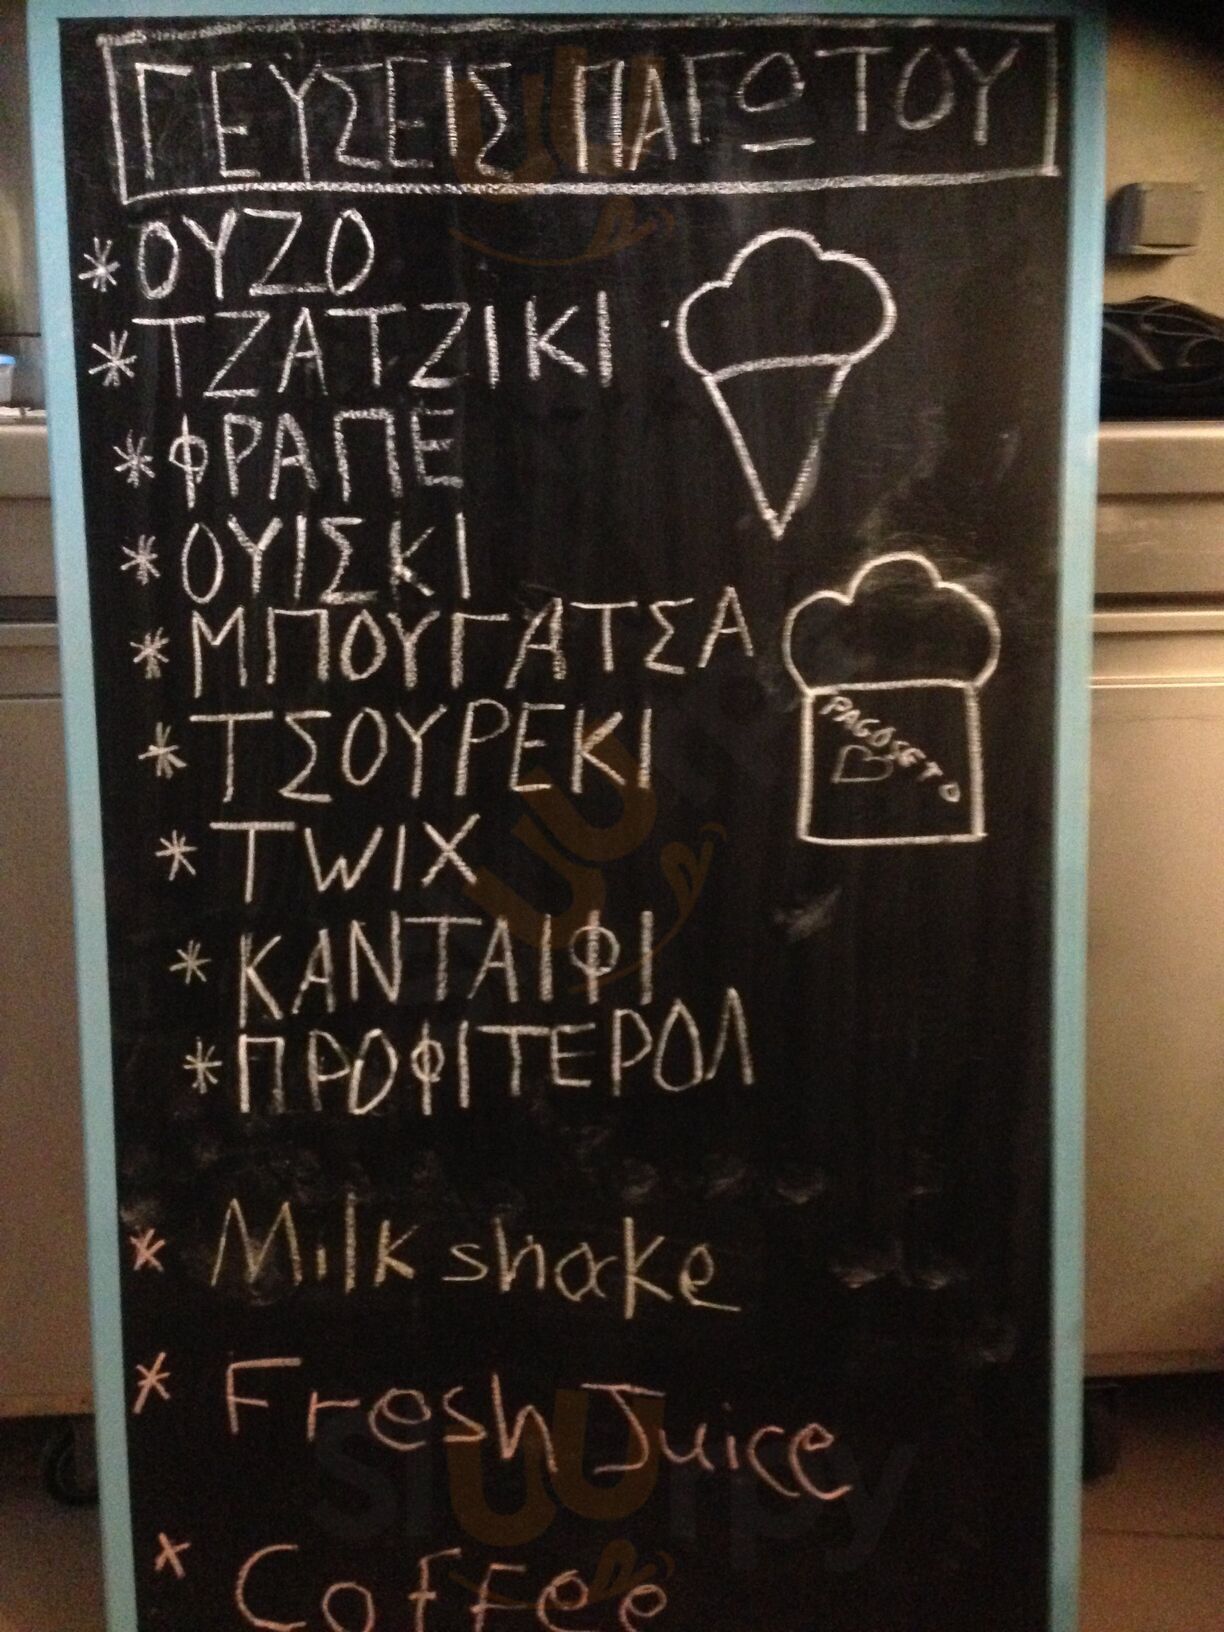 ΓΕΥΣΕΙΣ ΠΑΓΩΤΟΥ
* ΟΥΖΟ
* ΤΖΑΤΖΙΚΙ
* ΦΡΑΠΕ
* ΟΥΙΣΚΙ
* ΜΠΟΥΓΑΤΣΑ
* ΤΣΟΥΡΕΚΙ
* TWIX
* ΚΑΝΤΑΙΦΙ
* ΠΡΟΦΙΤΕΡΟΛ
PAGOSET
* Milk shake
* Fresh Juice
* Coffee
slurpy